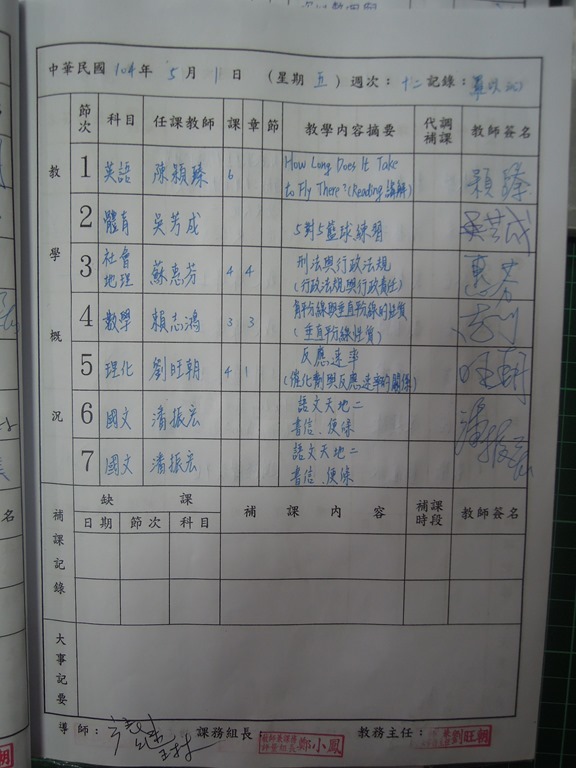 中華民國 104 年 5 月 1 日 (星期 五) 週次: 十二 記錄:
教學概況
節次 科目 任課教師 課 章 節 教學內容摘要 代調補課 教師簽名
1 英語 陳穎臻 6 How Long Does It Take to Fly There?(Reading 講解) 穎臻
2 體育 吳芳成 5對5籃球練習 吳芳成
3 社會地理 蘇惠芬 4 4 刑法與行政法規 (行政法規與行政責任) 惠芬
4 數學 賴志鴻 3 3 角平分線與垂直平分線的性質 (垂直平分線性質)
5 理化 劉旺朝 4 1 反應速率 (催化劑與反應速率的關係) 旺朝
6 國文 潘振宏 語文天地二 書信、便條 潘振宏
7 國文 潘振宏 語文天地二 書信、便條
補課記錄
缺課 補課內容 補課時段 教師簽名
日期 節次 科目
大事記要
導師: 課務組長: 鄭小鳳 教務主任: 劉旺朝